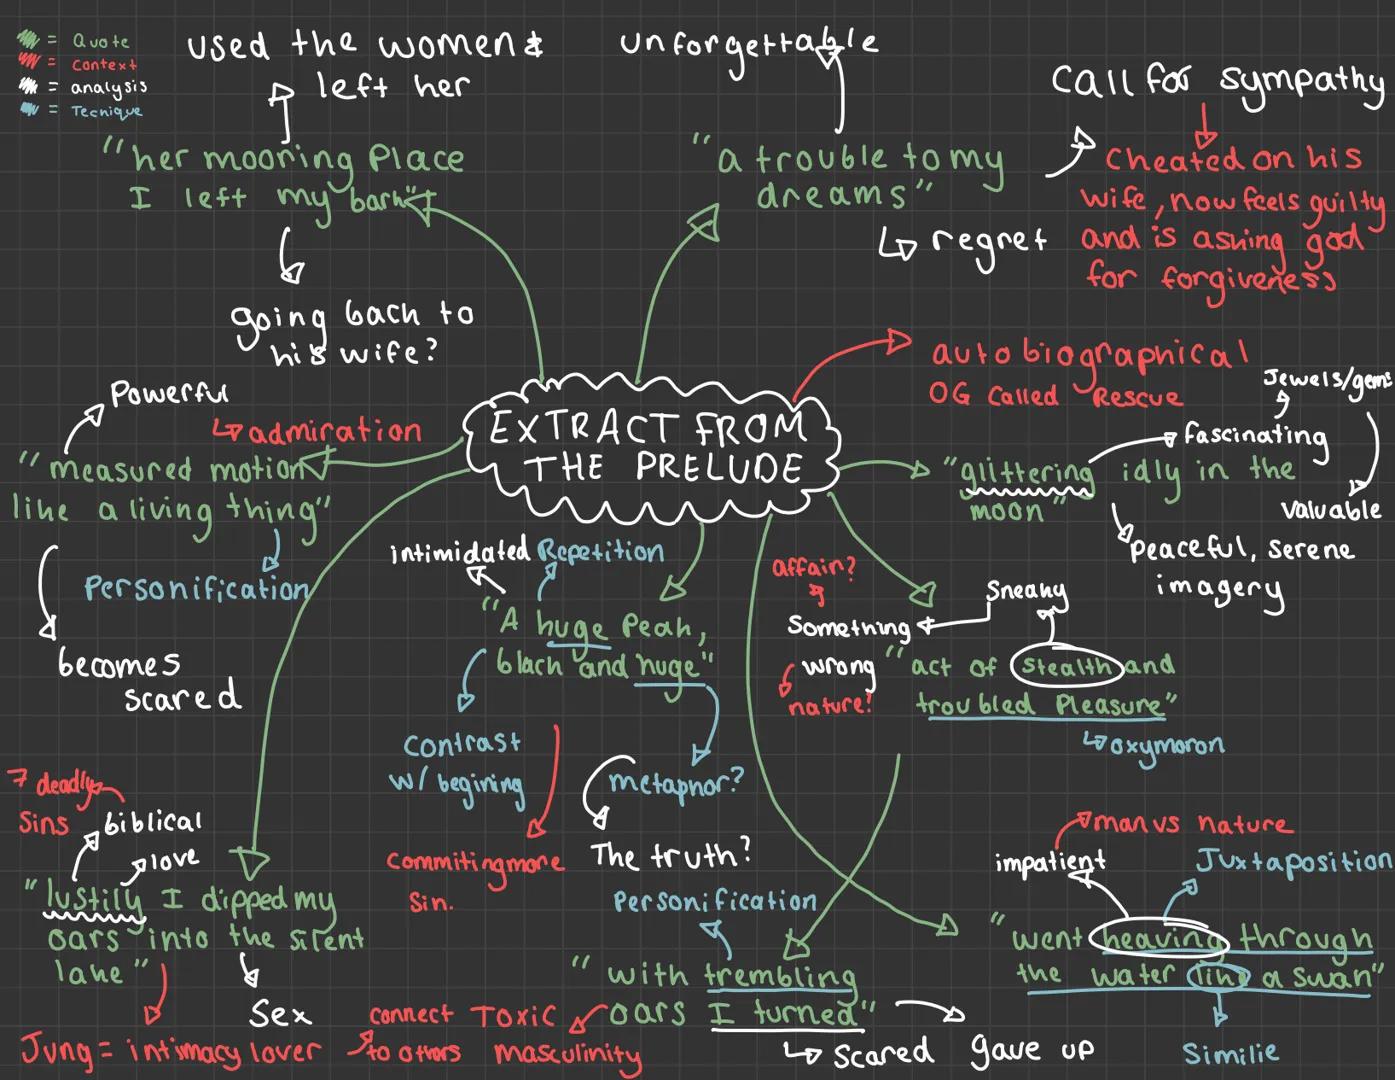 = Quote
= Context
= analysis
= Tecnique
used the women &
left her
unforgettable
Call for sympathy
"her mooring Place
I left my bark"
"a trouble to my
dreams"
Cheated on his
wife, now feels guilty
and is asking god
for forgiveness
regret
going back to
his wife?
autobiographical
OG Called Rescue
Powerful
admiration
"measured motion
like a living thing"
Personification
becomes
scared
EXTRACT FROM
THE PRELUDE
Jewels/gems
fascinating
"glittering idly in the
moon"
valuable
Peaceful, serene
imagery
intimidated
Repetition
"A huge Peak,
black and huge"
Contrast
w/ begining
metaphor?
The truth?
Commiting more
Sin.
affain?
Sneaky
Something
wrong
nature?
"act of Stealth and
troubled Pleasure"
oxymoron
7 deadly
Sins
biblical
love
"lustily I dipped my
oars into the silent
lake"
Sex
Jung = intimacy lover
connect
to others
Toxic
masculinity
Personification
"with trembling
oars I turned"
Scared
gave up
man vs nature
impatient
Juxtaposition
"went heaving through
the water like a swan"
Similie